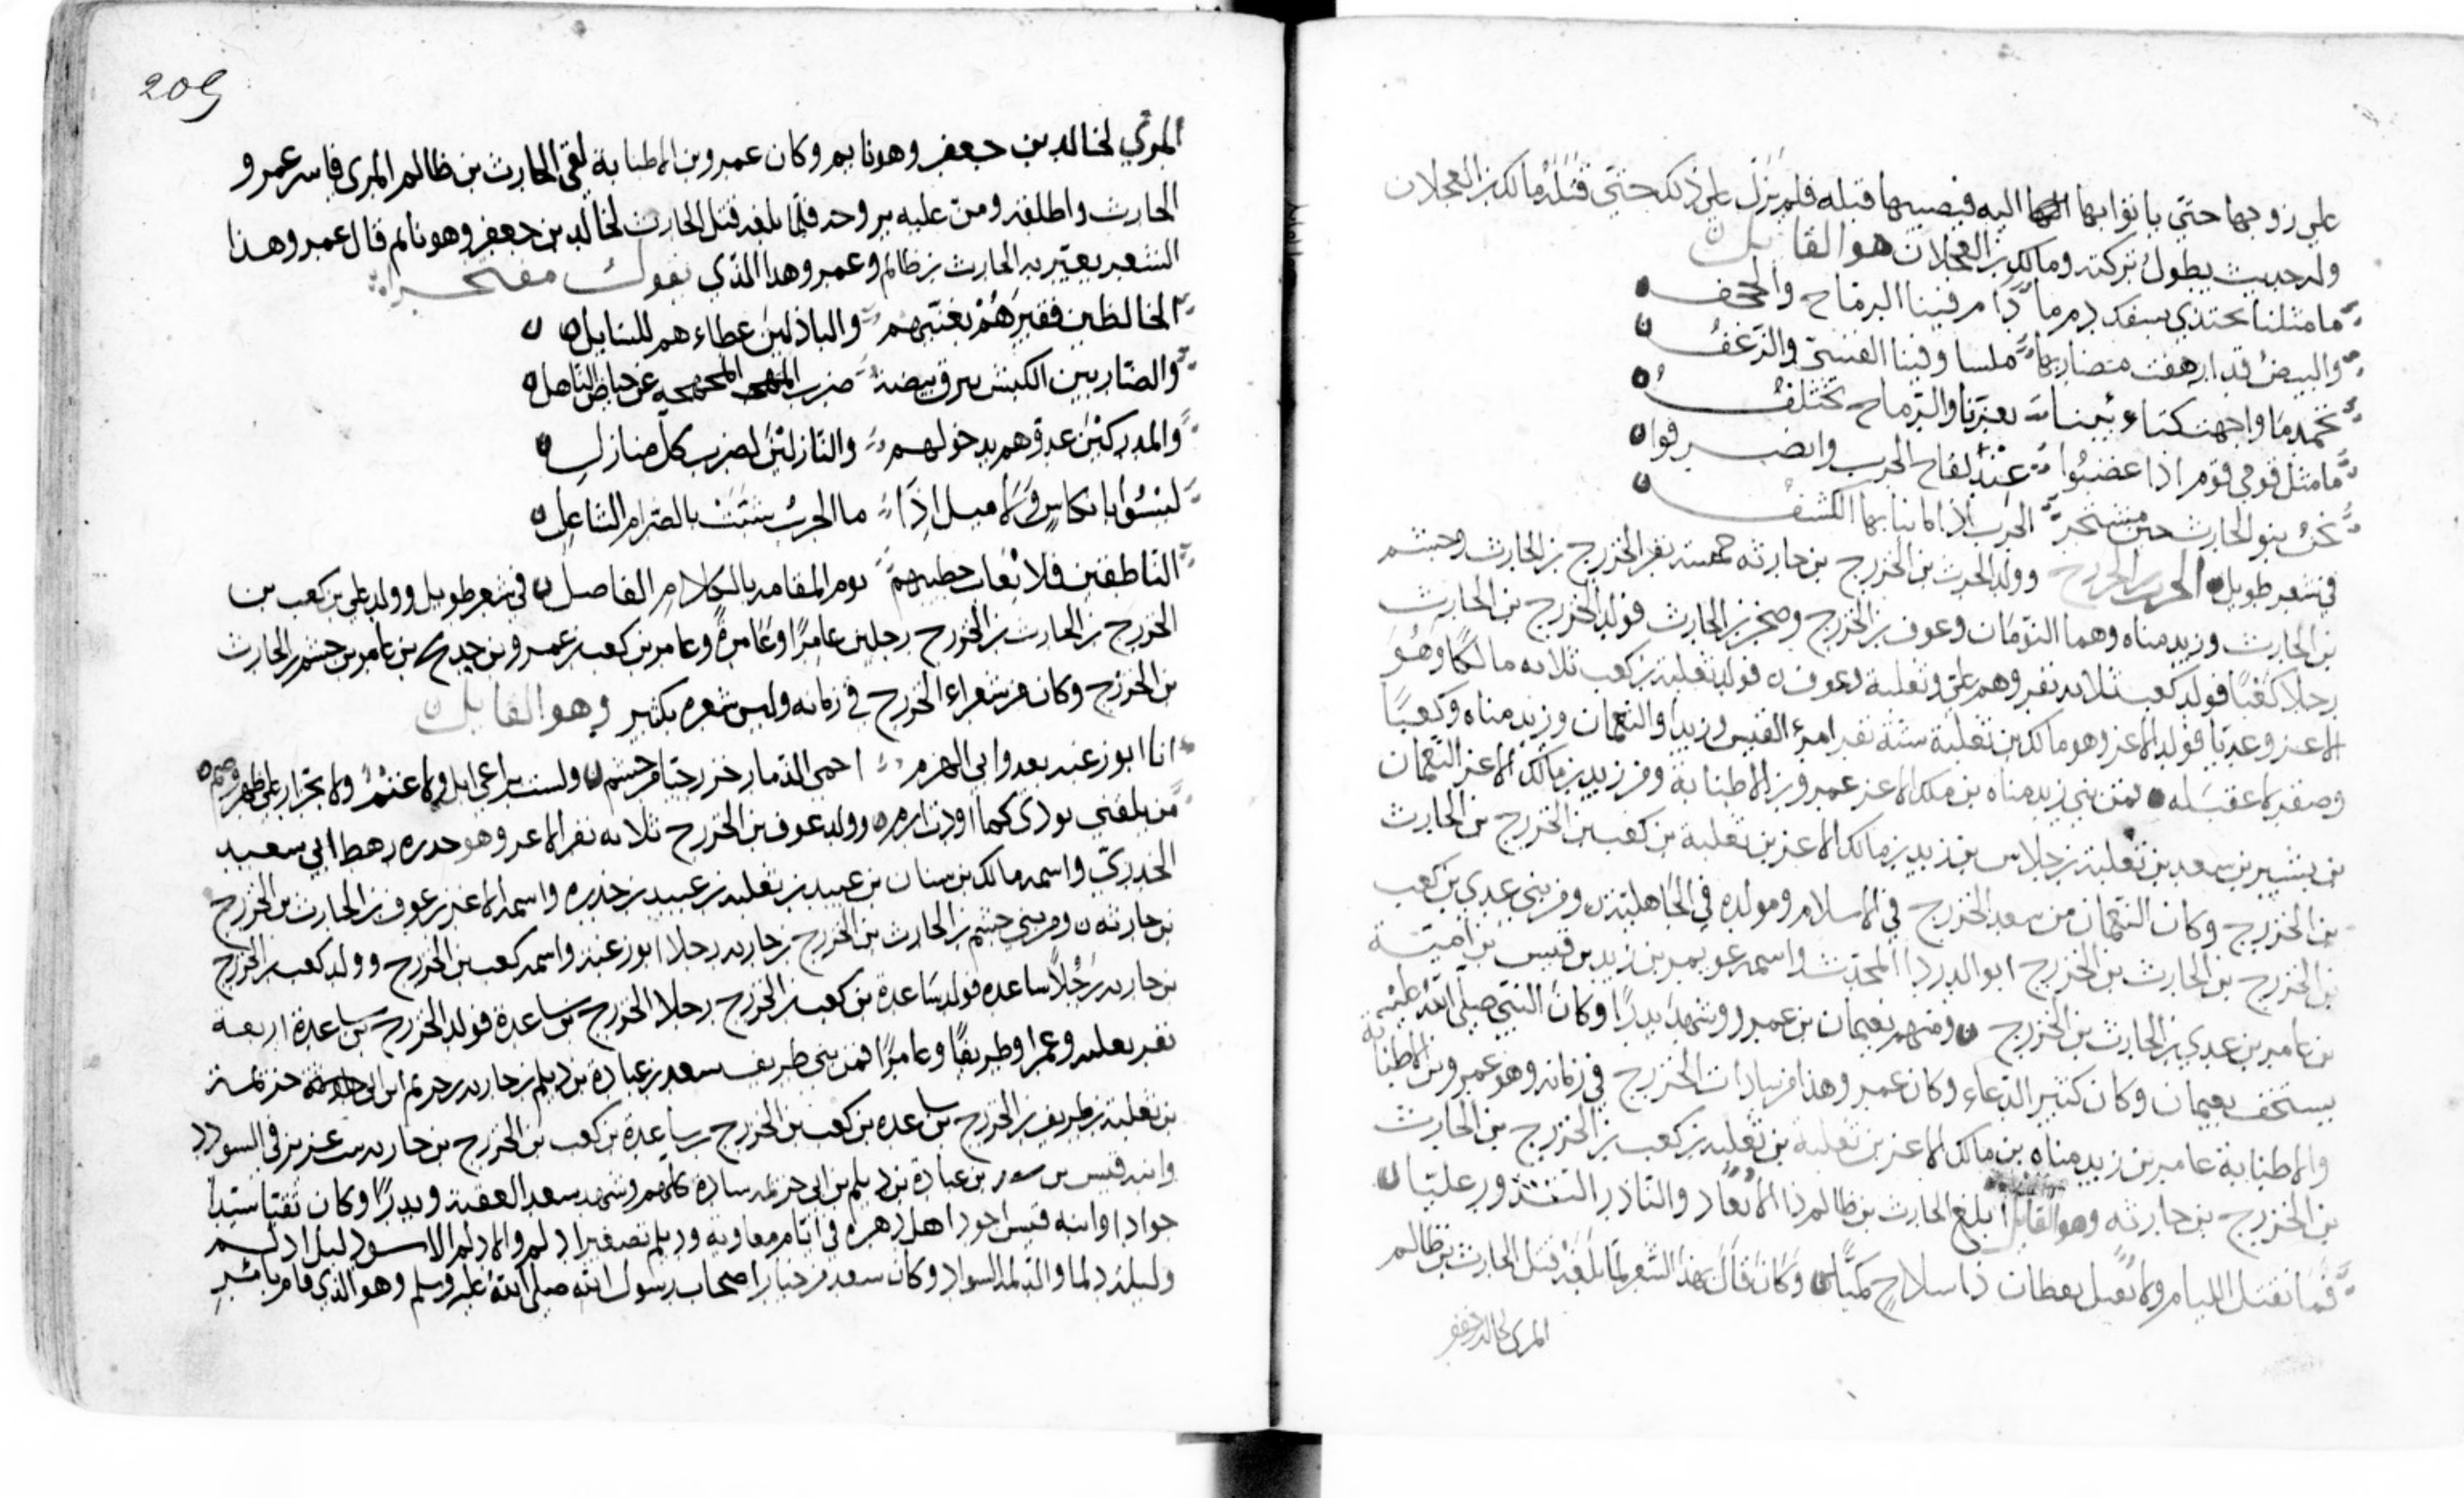 علي زوجها حتي ياتوا بها اليه فيصيبها قبله فلم يزل علي ذلك حتي قتله مالك بن العجلان
وله حديث يطول تركته ومالك بن العجلان هو القايل
ما مثلنا يحتذي بسفك دم ما دام فينا الرماح والحجف
والبيض قد ارهفت مضاربها ملسا وفينا القسي والزغف
ما مثل قومي قوم اذا غضبوا عند لقاح الحرب وانصرفوا
نحن بنو الحارث حين تشتجر الحرب اذا ما نابها الكشف
في شعر طويل وولد الحرث بن الخزرج بن حارثه خمسة نفر الخزرج بن الحارث وجشم
بن الحارث وزيد مناه وهما التومان وعوف بن الخزرج وصخر بن الحارث فولد الخزرج بن الحارث
رجلا كعبًا فولد كعب ثلاثه نفر وهم علي وثعلبة وعوف فولد ثعلبة بن كعب ثلاثه مالكًا وهو
الاعز وعديا فولد الاعز وهو مالك بن ثعلبة ستة نفر امرئ القيس وزيدا والنعمان وزيد مناه وكعبًا
وصفير لا عقب له فمن بني زيد مناه بن ملك الاعز عمرو بن الاطنابة ومن زيد بن مالك الاعز النعمان
بن بشير بن سعد بن ثعلبة بن جلاس بن زيد بن مالك الاعز بن ثعلبة بن كعب بن الخزرج بن الحارث
بن الخزرج وكان النعمان من سعد الخزرج في الاسلام ومولده في الجاهلية ومن بني عدي بن كعب
بن الخزرج بن الحارث بن الخزرج ابو الدرداء المحدث واسمه عويمر بن زيد بن قيس بن امية
بن عامر بن عدي بن الحارث بن الخزرج ومنهم نعيمان بن عمرو وشهد بدرًا وكان النبي صلى الله عليه
يستخف نعيمان وكان كثير الدعاء وكان عمرو هذا من سادات الخزرج في زمانه وهو عمرو بن الاطنابة
والاطنابة عامر بن زيد مناه بن مالك الاعز بن ثعلبة بن ثعلبه بن كعب بن الخزرج بن الحارث
بن الخزرج بن حارثه وهو القايل ابلغ الحارث بن ظالم ذا الايعاد والناذر النذور عليا
فما تقتل النيام ولا تقتل يقظان ذا سلاح كميا وكان قال هذا الشعر لما بلغه قتل الحارث بن ظالم
المري لخالد بن جعفر
209
المري لخالد بن جعفر وهو نايم وكان عمرو بن الاطنابة لقي الحارث بن ظالم المري فاسر عمرو
الحارث واطلقه ومن عليه بروحه فلما بلغه قتل الحارث لخالد بن جعفر وهو نائم قال عمرو هذا
الشعر يعير به الحارث بن ظالم وعمرو هذا الذي يقول مفتخرا
الخالطين فقيرهم بغنيهم والباذلين عطاءهم للسايل
والضاربين الكبش يبرق بيضه ضرب المجهجه عن حياض الناهل
والمدركين عدوهم بدخولهم والنازلين لضرب كل منازل
ليسوا بانكاس ولا ميل اذا ما الحرب شبت بالضرام الشاعل
الناطقين فلا يعاب خطيبهم يوم المقامه بالكلام الفاصل في شعر طويل وولد علي بن كعب بن
الخزرج بن الحارث بن الخزرج رجلين عامرًا وعامرة وعامر بن كعب بن عمرو بن خديج بن عامر بن جشم بن الحارث
بن الخزرج وكان من شعراء الخزرج في زمانه وليس شعره بكثير وهو القايل
انا ابو زعنه يعدوا بي الهزم احمي الذمار خزرجيا من جشم ولست براعي ابل ولا غنم ولا بجزار علي ظهر وضم
من يلقني يودي كما اودت ارم وولد عوف بن الخزرج ثلاثه نفر الاعز وهو خدره رهط ابي سعيد
الخدري واسمه مالك بن سنان بن عبيد بن ثعلبه بن عبيد بن خدره واسمه الاعز بن عوف بن الحارث بن الخزرج
بن حارثه ومن بني جشم بن الحارث بن الخزرج بن حارثه رجلا ابو زعنه واسمه كعب بن الخزرج وولد كعب بن الخزرج
بن حارثه رجُلاً ساعده فولد ساعدة بن كعب بن الخزرج رجلا الخزرج بن ساعدة فولد الخزرج بن ساعدة اربعة
نفر ثعلبه وعمرا وطريفًا وعامرًا فمن بني طريف سعد بن عبادة بن ديلم بن حارثه بن حزيم ابن ابي حزيمة
بن ثعلبة بن طريف بن الخزرج بن ساعده بن كعب بن الخزرج ساعدة بن كعب بن الخزرج بن حارثه بيت عزيز في السودد
وابنه قيس بن سعد بن عبادة بن ديلم بن ابي حزيمه سادة كلهم وشهد سعد العقبة وبدرًا وكان نقيبا سيدا
جوادا وابنه قيس اجود اهل دهره في ايام معاوية وديلم تصغير ادلم والادلم الاسود ليل ادلم
وليلة دلما والدلمه السواد وكان سعد من خيار اصحاب رسول الله صلى الله عليه وسلم وهو الذي قام بامر